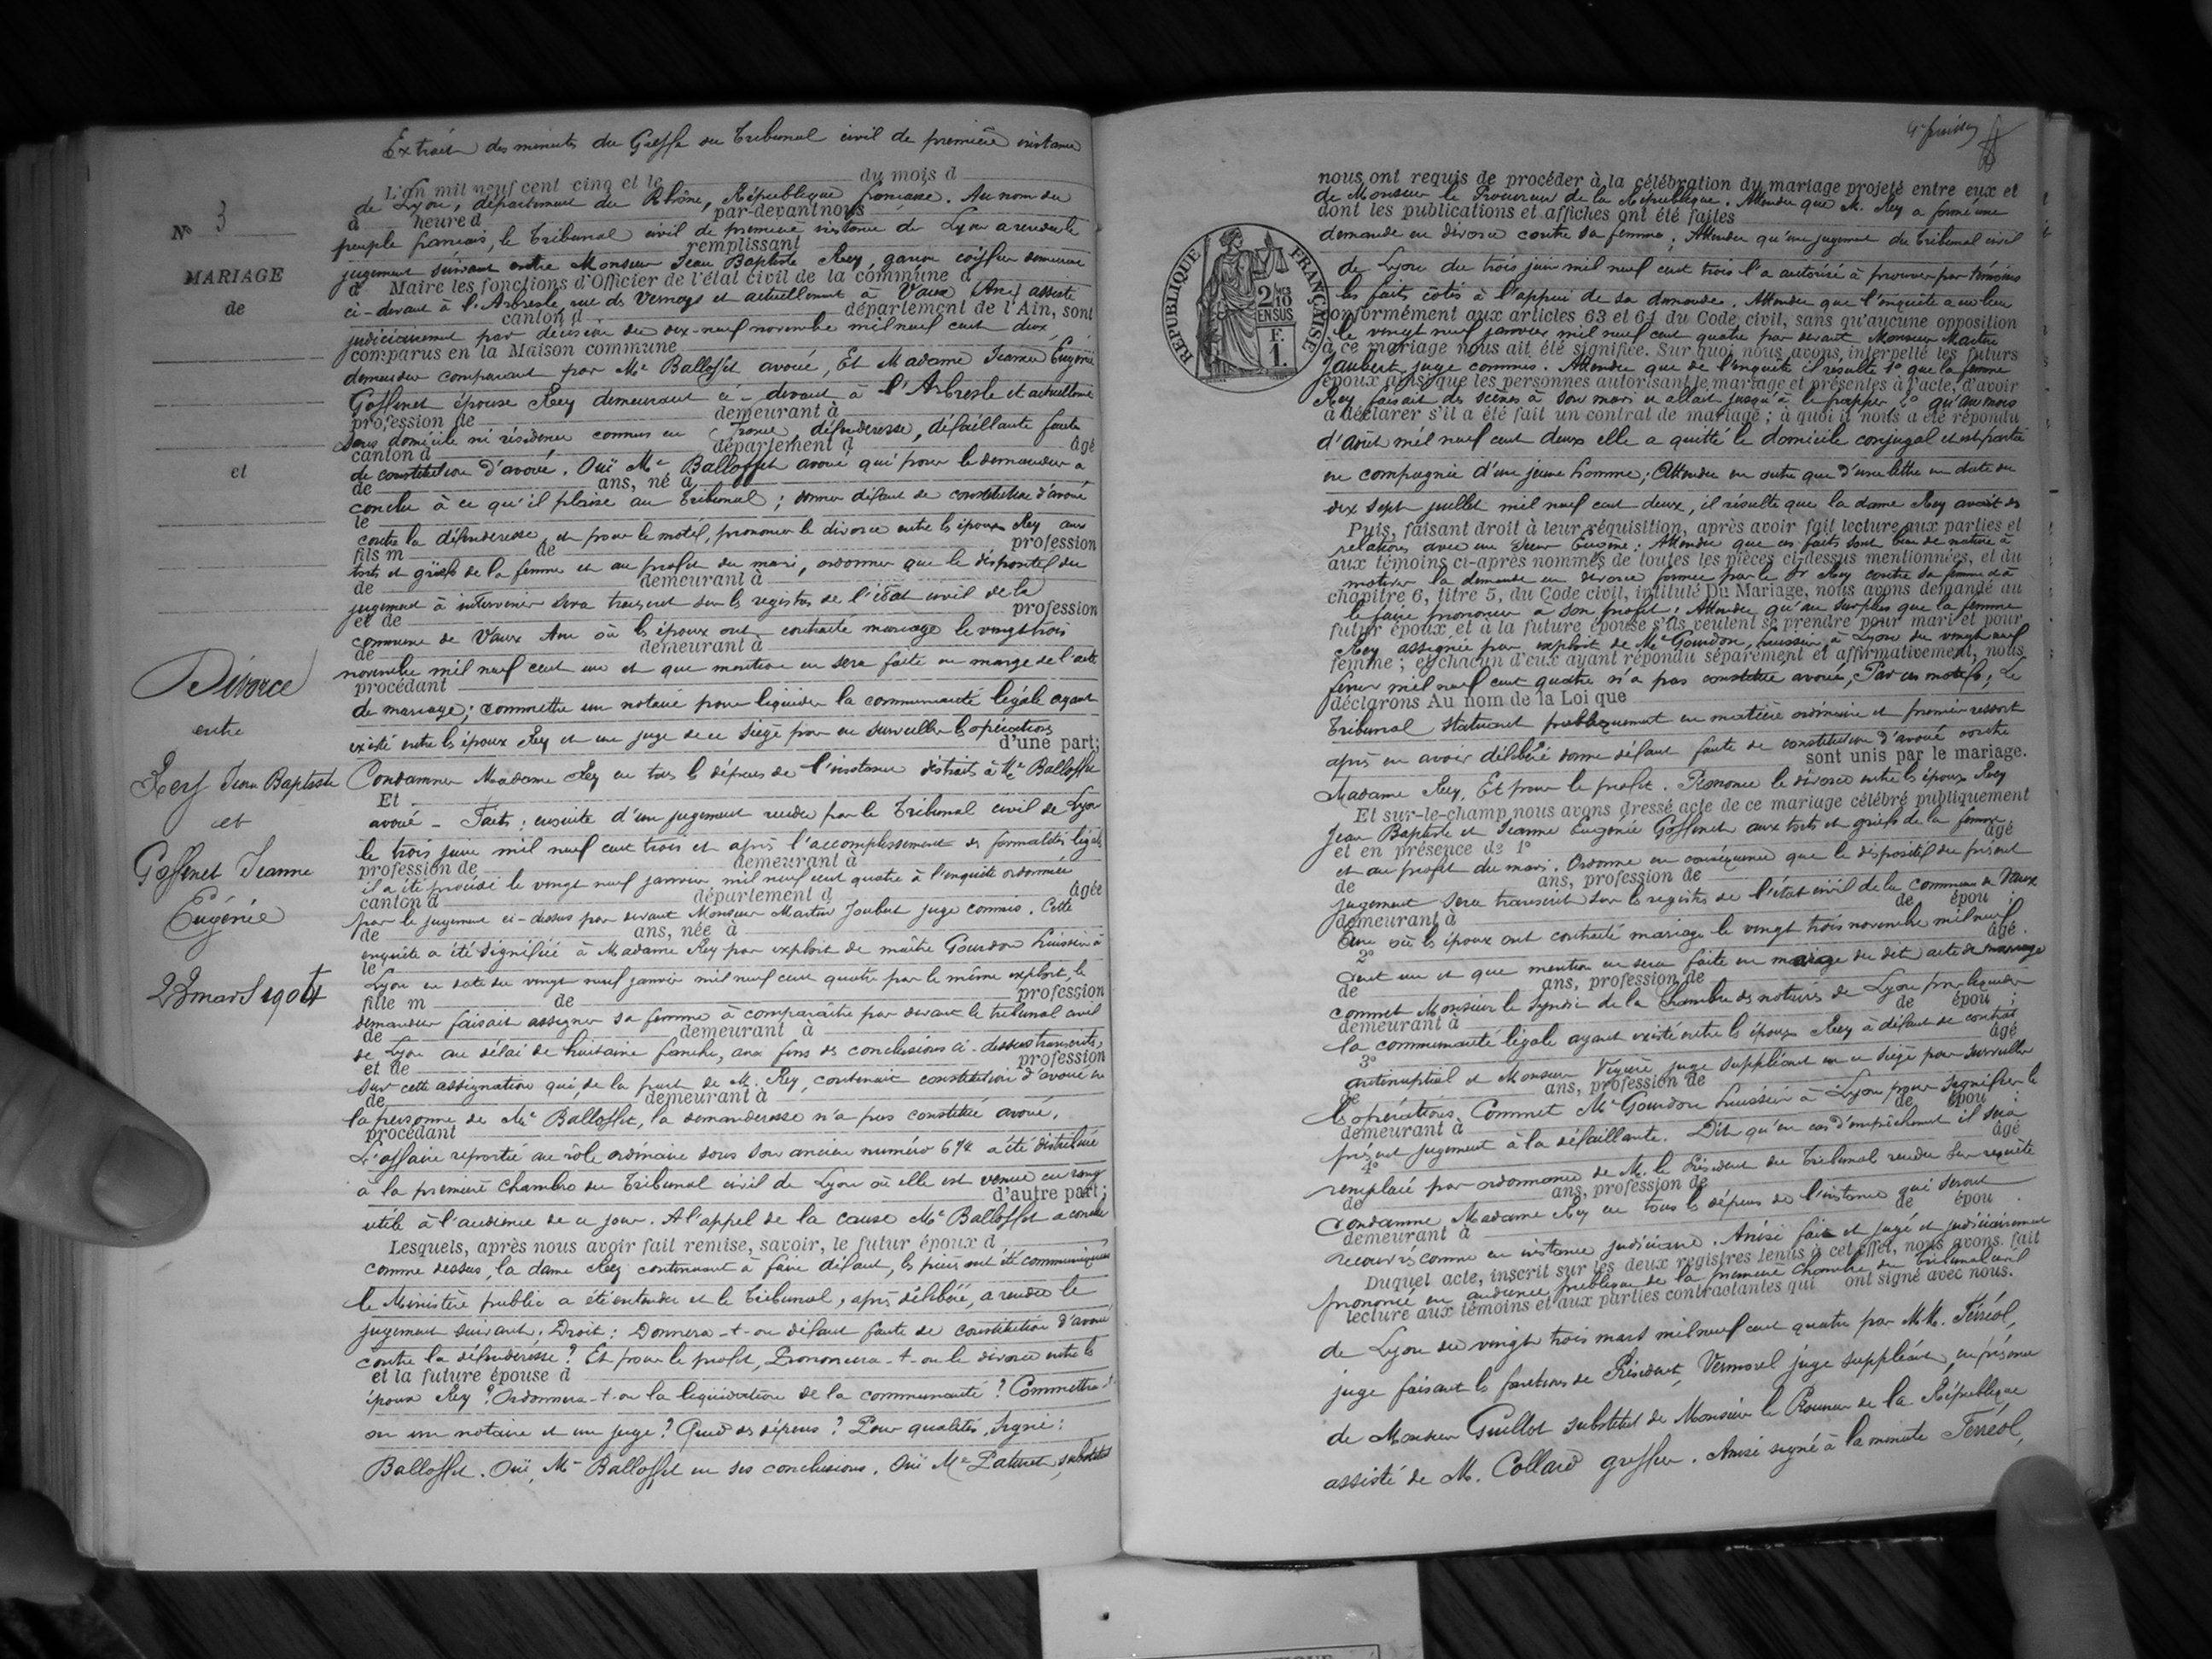 Extrait des minutes du Greffe du Tribunal civil de première instance
L'an mil neuf cent cinq et le du mois d
de Lyon, département du Rhône, République française. Au nom du
à heure d par-devant nous
N° 3
peuple français, le Tribunal civil de première instance de Lyon a rendu le
remplissant
jugement suivant entre Monsieur Jean Baptiste Rey, garçon coiffeur demeurant
MARIAGE
d Maire les fonctions d'Officier de l'état civil de la commune d
ci-devant à l'Arbresle, rue des Vernays et actuellement à Vaux (Ain) assisté
de
canton d département de l'Ain, sont
judiciairement par décision du dix-neuf novembre mil neuf cent deux,
comparus en la Maison commune
demandeur comparant par Me Balloffet avoué, Et Madame Jeanne Eugénie
Goffinet épouse Rey demeurant ci-devant à l'Arbresle et actuellement
profession de demeurant à
sans domicile ni résidence connus en France défenderesse, défaillante faute
canton d département d âgé
et
de constitution d'avoué. Ouï Me Balloffet avoué qui pour le demandeur a
de ans, né à
conclu à ce qu'il plaise au Tribunal; donner défaut de constitution d'avoué
le
contre la défenderesse et pour le motif, prononcer le divorce entre les époux Rey aux
fils m de profession
torts et griefs de la femme et au profit du mari, ordonner que le dispositif du
de demeurant à
jugement à intervenir sera transcrit sur les registres de l'état civil de la
et de profession
commune de Vaux Ain où les époux ont contracté mariage le vingt trois
de demeurant à
novembre mil neuf cent un et que mention en sera faite en marge de l'acte
Divorce
procédant
de mariage; commettre un notaire pour liquider la communauté légale ayant
entre
existé entre les époux Rey et un juge de ce siège pour en surveiller les opérations
d'une part;
Rey Jean Baptiste
Condamner Madame Rey en tous les dépens de l'instance distraits à Me Balloffet
Et
et
avoué - Faits: ensuite d'un jugement rendu par le Tribunal civil de Lyon
le trois juin mil neuf cent trois et après l'accomplissement des formalités légales
Goffinet Jeanne
profession de demeurant à
il a été procédé le vingt neuf janvier mil neuf cent quatre à l'enquête ordonnée
canton d département d âgée
Eugénie
par le jugement ci-dessus par devant Monsieur Martin Joubert juge commis. Cette
de ans, née à
enquête a été signifiée à Madame Rey par exploit de maître Gourdon huissier à
le
23 mars 1904
Lyon en date du vingt neuf janvier mil neuf cent quatre par le même exploit, le
fille m de profession
demandeur faisait assigner sa femme à comparaître par devant le tribunal civil
de demeurant à
de Lyon au délai de huitaine franche, aux fins des conclusions ci-dessus transcrites,
et de profession
sur cette assignation qui, de la part de M. Rey, contenait constitution d'avoué en
de demeurant à
la personne de Me Balloffet, la demanderesse n'a pas constitué avoué.
procédant
L'affaire reportée au rôle ordinaire sous son ancien numéro 674 a été distribuée
à la première Chambre du Tribunal civil de Lyon où elle est venue en rang
d'autre part;
utile à l'audience de ce jour. A l'appel de la cause Me Balloffet a conclu
Lesquels, après nous avoir fait remise, savoir, le futur époux d
comme dessus, la dame Rey continuant à faire défaut, les pièces ont été communiquées
le Ministère public a été entendu et le Tribunal, après délibéré, a rendu le
jugement suivant. Droit: Donnera-t-on défaut faute de constitution d'avoué
contre la défenderesse? Et pour le profit, Prononcera-t-on le divorce entre les
et la future épouse d
époux Rey? Ordonnera-t-on la liquidation de la communauté? Commettra-t
on un notaire et un juge? Quid des dépens? Pour qualités, signé:
Balloffet. Ouï, Me Balloffet en ses conclusions. Ouï Me substitut
nous ont requis de procéder à la célébration du mariage projeté entre eux et
de Monsieur le Procureur de la République. Attendu que M. Rey a formé une
dont les publications et affiches ont été faites
demande en divorce contre sa femme; Attendu qu'un jugement du Tribunal civil
RÉPUBLIQUE FRANÇAISE
2/10 EN SUS
F. 1.
de Lyon du trois juin mil neuf cent trois l'a autorisé à prouver par témoins
les faits côtés à l'appui de sa demande. Attendu que l'enquête a eu lieu
conformément aux articles 63 et 64 du Code civil, sans qu'aucune opposition
le vingt neuf janvier mil neuf cent quatre par devant Monsieur Martin
à ce mariage nous ait été signifiée. Sur quoi nous avons interpellé les futurs
Jaubert, juge commis. Attendu que de l'enquête il résulte 1° que la femme
époux ainsi que les personnes autorisant le mariage et présentes à l'acte, d'avoir
Rey faisait des scènes à son mari et allait jusqu'à le frapper 2° qu'au mois
à déclarer s'il a été fait un contrat de mariage; à quoi il nous a été répondu
d'août mil neuf cent deux elle a quitté le domicile conjugal et est partie
en compagnie d'un jeune homme; Attendu en outre que d'une lettre en date du
dix sept juillet mil neuf cent deux, il résulte que la dame Rey avait des
Puis, faisant droit à leur réquisition, après avoir fait lecture aux parties et
relations avec un sieur Eugène; Attendu que ces faits sont bien de nature à
aux témoins ci-après nommés de toutes les pièces ci-dessus mentionnées, et du
motiver la demande en divorce formée par le Sr Rey contre sa femme et à
chapitre 6, titre 5, du Code civil, intitulé Du Mariage, nous avons demandé au
le faire prononcer à son profit; Attendu qu'au surplus que la femme
futur époux et à la future épouse s'ils veulent se prendre pour mari et pour
Rey assignée par exploit de Me Gourdon, huissier à Lyon du vingt neuf
femme; et chacun d'eux ayant répondu séparément et affirmativement, nous
février mil neuf cent quatre n'a pas constitué avoué, Par ces motifs; Le
déclarons Au nom de la Loi que
Tribunal statuant publiquement en matière ordinaire et premier ressort
après en avoir délibéré donne défaut faute de constitution d'avoué contre
sont unis par le mariage.
Madame Rey. Et pour le profit. Prononce le divorce entre les époux Rey
Et sur-le-champ nous avons dressé acte de ce mariage célébré publiquement
Jean Baptiste et Jeanne Eugénie Goffinet aux torts et griefs de la femme
et en présence de 1° âgé
et au profit du mari. Ordonne en conséquence que le dispositif du présent
de ans, profession de
jugement sera transcrit sur les registres de l'état civil de la commune de Vaux
demeurant à de épou ;
Ain où les époux ont contracté mariage le vingt trois novembre mil neuf
2° âgé
cent un et que mention en sera faite en marge du dit acte de mariage
de ans, profession de
commet Monsieur le Syndic de la Chambre des notaires de Lyon pour liquider
demeurant à de épou ;
la communauté légale ayant existé entre les époux Rey à défaut de contrat
3° âgé
antinuptial et Monsieur juge suppléant en ce siège pour surveiller
de ans, profession de
les opérations. Commet Me Gourdon huissier à Lyon pour signifier le
demeurant à de épou ;
présent jugement à la défaillante. Dit qu'en cas d'empêchement il sera
4° âgé
remplacé par ordonnance de M. le Président du Tribunal rendue sur requête
de ans, profession de
Condamne Madame Rey en tous les dépens de l'instance qui seront
demeurant à de épou .
recouvrés comme en instance judiciaire. Ainsi fait et jugé et judiciairement
Duquel acte, inscrit sur les deux registres tenus à cet effet, nous avons fait
prononcé en audience publique de la première chambre du Tribunal civil
lecture aux témoins et aux parties contractantes qui ont signé avec nous.
de Lyon du vingt trois mars mil neuf cent quatre par MM. Ferréol,
juge faisant les fonctions de Président, Vermorel juge suppléant, en présence
de Monsieur Guillot substitut de Monsieur le Procureur de la République
assisté de M. Collard greffier. Ainsi signé à la minute Ferréol,